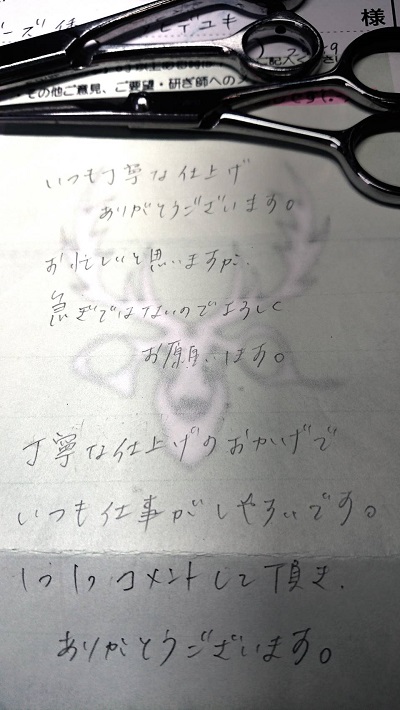 ヒデユキ
様
・その他ご意見、ご要望・研ぎ師へのメ
いつも丁寧な仕上げ
ありがとうございます。
お忙しいと思いますが、
急ぎではないのでよろしく
お願います。
丁寧な仕上げのおかげで
いつも仕事がしやすいです。
1つ1つコメントして頂き、
ありがとうございます。